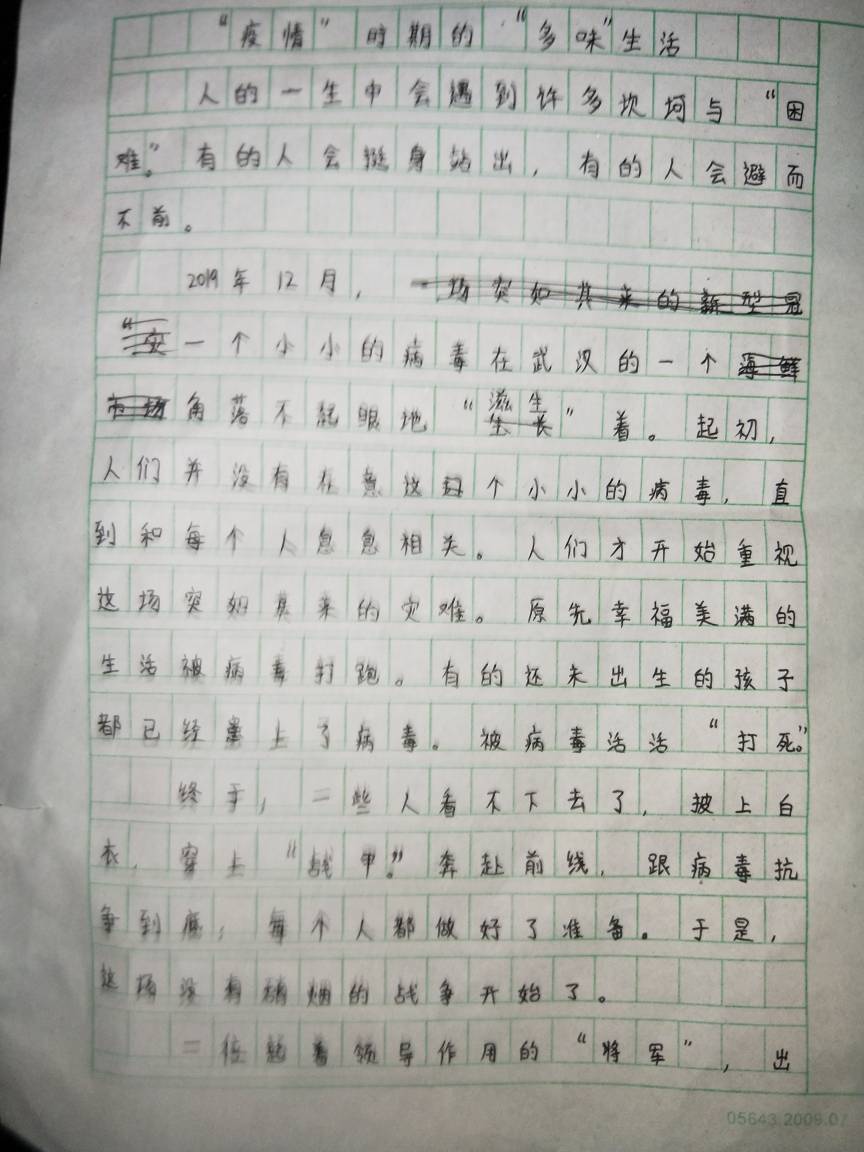 “疫情”时期的“多味”生活
人的一生中会遇到许多坎坷与“困
难”。有的人会挺身站出，有的人会避而
不前。
2019年12月，一场突如其来的新型冠
“突一个小小的病毒在武汉的一个海鲜
市场角落不起眼地“滋生生长”着。起初，
人们并没有在意这个小小的病毒，直
到和每个人息息相关。人们才开始重视
这场突如其来的灾难。原先幸福美满的
生活被病毒打跑。有的还未出生的孩子
都已经患上了病毒。被病毒活活“打死”。
终于，一些人看不下去了，披上白
衣，穿上“战甲”。奔赴前线，跟病毒抗
争到底，每个人都做好了准备。于是，
这场没有硝烟的战争开始了。
一位起着领导作用的“将军”，出
05643.2009.07